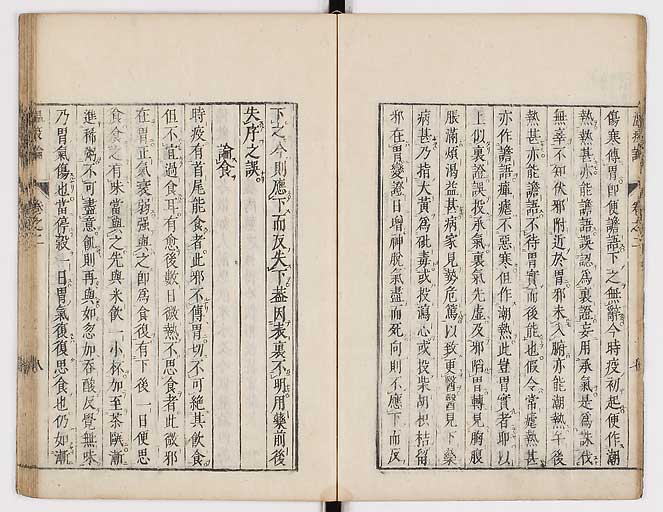 傷寒傳胃即便譫語下之無辭今時疫初起便作潮
熱熱甚亦能譫語誤認為裏證妄用承氣是為誅伐
無辜不知伏邪附近於胃邪未入腑亦能潮熱午後
熱甚亦能譫語不待胃實而後能也假令常瘧熱甚
亦作譫語癉瘧不惡寒但作潮熱此豈胃實者耶以
上似裏證誤投承氣裏氣先虛及邪陷胃轉見胸腹
脹滿煩渴益甚病家見勢危篤以致更醫醫見下藥
病甚乃指大黃為砒毒或投瀉心或投柴胡枳桔留
邪在胃變證日增神脫氣盡而死向則不應下而反
下之今則應下而反失下蓋因表裏不明用藥前後
失序之誤
論食
時疫有首尾能食者此邪不傳胃切不可絕其飲食
但不宜過食耳有愈後數日微熱不思食者此微邪
在胃正氣衰弱強與之即為食復有下後一日便思
食食之有味當與之先與米飲一小杯加至茶甌漸
進稀粥不可盡意飢則再與如忽加吞酸反覺無味
乃胃氣傷也當停穀一日胃氣復復思食也仍如漸
卷之二
八